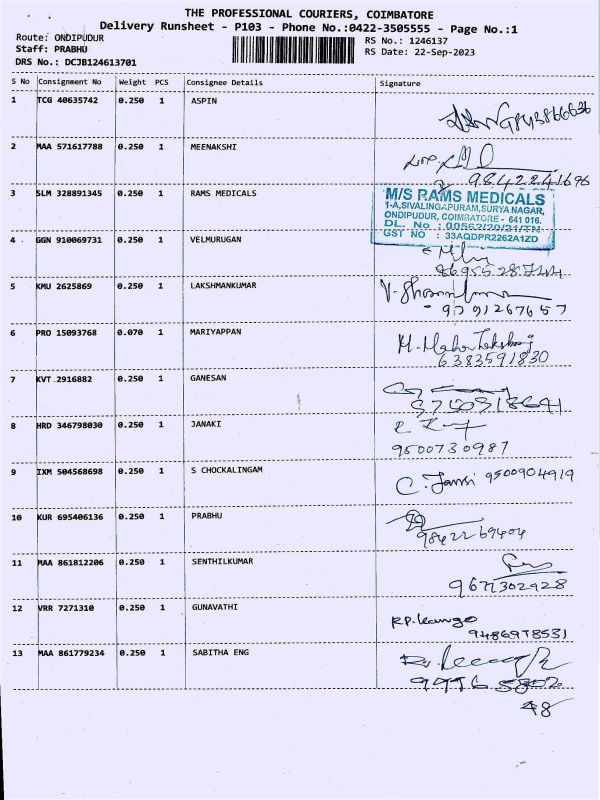 THE PROFESSIONAL COURIERS, COIMBATORE
Delivery Runsheet - P103 - Phone No.:0422-3505555 - Page No.:1
Route: ONDIPUDUR
RS No.: 1246137
Staff: PRABHU
RS Date: 22-Sep-2023
DRS No.: DCJB124613701
S No Consignment No Weight PCS Consignee Details Signature
1 TCG 40635742 0.250 1 ASPIN
2 MAA 571617788 0.250 1 MEENAKSHI
9842241696
3 SLM 328891345 0.250 1 RAMS MEDICALS
M/S RAMS MEDICALS
1-A,SIVALINGAPURAM,SURYA NAGAR,
ONDIPUDUR, COIMBATORE - 641 016.
DL. No : 00562/20/21/TN
GST NO : 33AQDPR2262A1ZD
4 GGN 910069731 0.250 1 VELMURUGAN
5 KMU 2625869 0.250 1 LAKSHMANKUMAR
9791267657
6 PRO 15093768 0.070 1 MARIYAPPAN
6383591830
7 KVT 2916882 0.250 1 GANESAN
8 HRD 346798030 0.250 1 JANAKI
9500730987
9 IXM 504568698 0.250 1 S CHOCKALINGAM
C. Jansi 9500904919
10 KUR 695406136 0.250 1 PRABHU
9842269404
11 MAA 861812206 0.250 1 SENTHILKUMAR
9677302928
12 VRR 7271310 0.250 1 GUNAVATHI
9486978531
13 MAA 861779234 0.250 1 SABITHA ENG
99965802
48